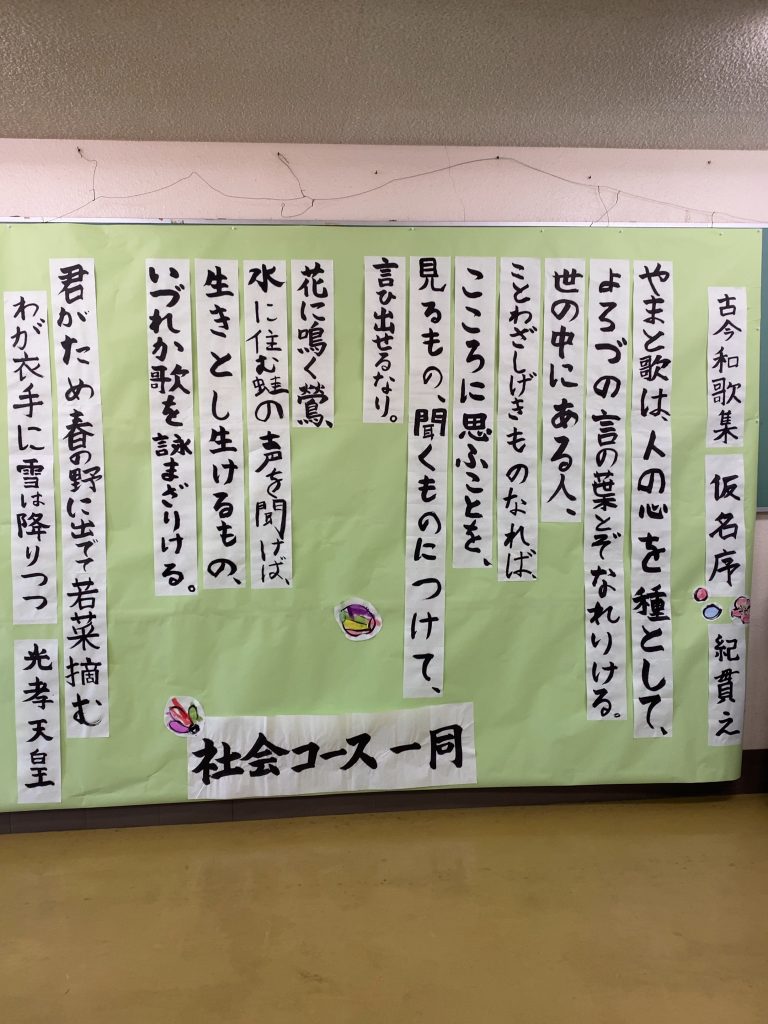 古今和歌集 仮名序 紀貫之
やまと歌は、人の心を種として、
よろづの言の葉とぞなれりける。
世の中にある人、
ことわざしげきものなれば、
こころに思ふことを、
見るもの、聞くものにつけて、
言ひ出せるなり。
花に鳴く鶯、
水に住む蛙の声を聞けば、
生きとし生けるもの、
いづれか歌を詠まざりける。
君がため春の野に出でて若菜摘む
わが衣手に雪は降りつつ 光孝天皇
社会コース一同